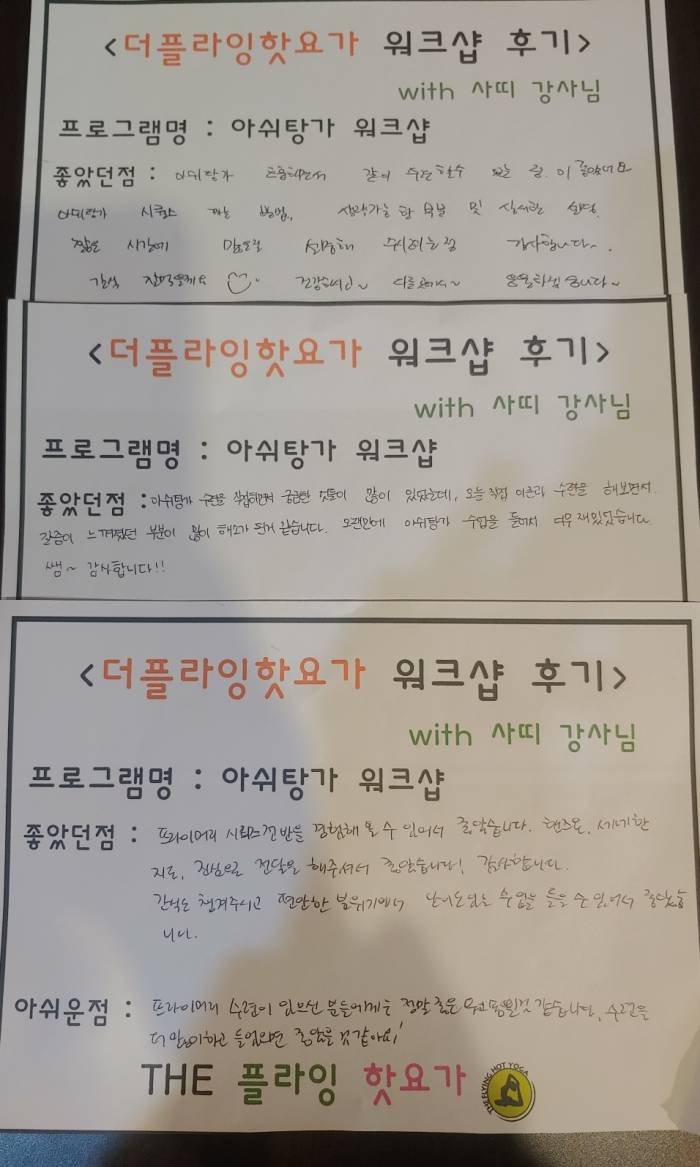 <더플라잉핫요가 워크샵 후기>
with 사띠 강사님
프로그램명 : 아쉬탕가 워크샵
좋았던점 : 아쉬탕가 같이 수련할수 좋았어요
아쉬탕가 시퀀스 방법, 및 설명.
짧은 시간에 감사합니다~.
간식 잘먹을게요 건강하시고~ 다음에서~
<더플라잉핫요가 워크샵 후기>
with 사띠 강사님
프로그램명 : 아쉬탕가 워크샵
좋았던점 : 아쉬탕가 수련을 궁금한 것들이 많이 있었는데, 오늘 직접 이론과 수련을 해보면서
갈증이 느껴졌던 부분이 많이 해소가 된거 같습니다. 오랜만에 아쉬탕가 수업을 들어서 너무 재밌었습니다
쌤~ 감사합니다!!
<더플라잉핫요가 워크샵 후기>
with 사띠 강사님
프로그램명 : 아쉬탕가 워크샵
좋았던점 : 프라이머리 시리즈 전반을 경험해 볼 수 있어서 좋았습니다. 핸즈온, 세세한
지도, 진심으로 전달을 해주셔서 좋았습니다! 감사합니다.
간식도 챙겨주시고 편안한 분위기에서 수업을 들을 수 있어서 좋았습
니다.
아쉬운점 : 프라이머리 수련이 있으신 분들에게는 정말 좋은 같습니다, 수련을
더 많이하고 들었으면 좋았을 것 같아요!
THE 플라잉 핫요가
THE FLYING HOT YOGA